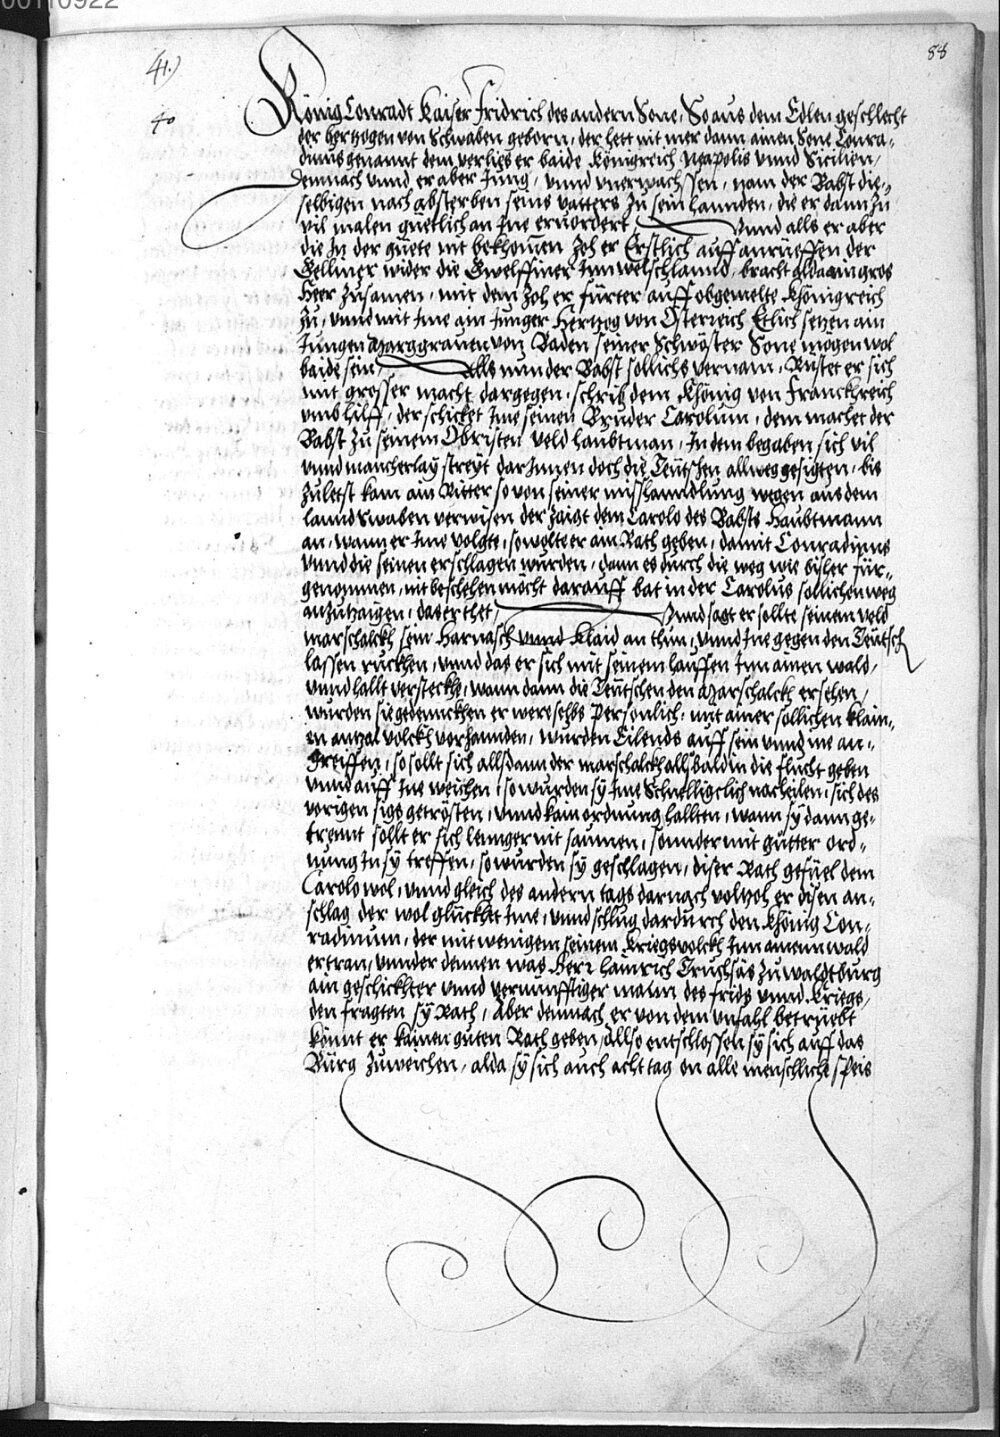 00110922
88
41.)
40
König Conradt Kaiser Fridrich des andern Sone, So aus dem Edlen geschlecht
der hertzogen von Schwaben geborn, der hett nit mer dann ainen Sone Conra-
dinus genannt dem verlies er baide Königreich Neapolis vnnd Sicilien,
Demnach vnnd er aber Jung, vnnd vnerwachssen, nam der Babst die-
selbigen nach absterben seins vatters zu sein hannden, die er dann zu
vil malen güetlich an Ine eruordert Vnnd alls er aber
die In der güete nit bekhomen, Zoh er Erstlich auff anrüeffen der
Gelliner wider die Gwelffiner Inn welschlannd, bracht alda ain gros
Heer zusamen, mit dem Zoh er fürter auff obgemelte Khönigreich
zu, vnnd mit Ime ain Junger Hertzog von Österreich Etlich setzen ain
Jungen Marggrauen von Baden seiner Schwöster Sone mögen wol
baide sein, Alls nun der Babst sollichs vernam, Rüstet er sich
mit grosser macht dargegen, schrib dem Khönig von Franckhreich
vmb hilff, der schicket Ime seinen Bruder Carolum, dem machet der
Babst zu seinem Obristen veld haubtman, In dem begaben sich vil
vnnd mancherlay streyt darInnen doch die Teütschen allweg gesigten, bis
zuletst kam ain Ritter so von seiner misshanndlung wegen aus dem
lannd Swaben verwisen der zaigt dem Carolo des Babsts Haubtmann
an, wann er Ime volgte, so wolte er ain Rath geben, damit Conradinus
vnnd die seinen erschlagen wurden, dann es durch die weg wie bisher für-
genommen, nit beschehen möcht darauff bat in der Carolus sollichen weg
anzuzaigen, das er thet, Vnnd sagt er sollte seinem veld
marschalckh sein Harnasch vnnd Klaid an thun, vnnd Ine gegen den Teütsch
lassen ruckhen, vnnd das er sich mit seinem hauffen Inn ainen wald,
vnnd hallt versteckhe, wann dann die Teütschen den Marschalckh ersehen,
wurden sie gedennckhen er were selbs personlich, mit ainer sollichen klain-
en antzal volckh vorhannden, wurden Eilends auff sein vnnd ine an-
greiffen, so sollt sich allsdann der marschalckh allsbald in die flucht geben
vnnd auff Ine weichen, so wurden sy Ime Schnelligclich nacheilen, sich des
vorigen sigs getrösten, vnnd kain ordnung hallten, wann sy dann ge-
trennt sollt er sich lennger nit saumen, sonnder mit gütter ord-
nung In sy treffen, so wurden sy geschlagen, diser Rath gefüel dem
Carolo wol, vnnd gleich des andern tags darnach volzoh er disen an-
schlag der wol glückhet Ime, vnnd schlug dardurch den Khönig Con-
radinum, der mit wenigem seinem Kriegsvolckh Inn ainenn wald
ertran, vnnder dennen was Herr Hainrich Truchsäs zu waldtburg
ain geschickhter vnnd vernunfftiger mann des frids vnnd Kriegs,
den fragten sy Rath, Aber demnach er von dem vnfahl betrüebt
könnt er kainen guten Rath geben, Allso entschlossen sy sich auff das
Bürg zuweichen, alda sy sich auch acht tag on alle menschliche speis